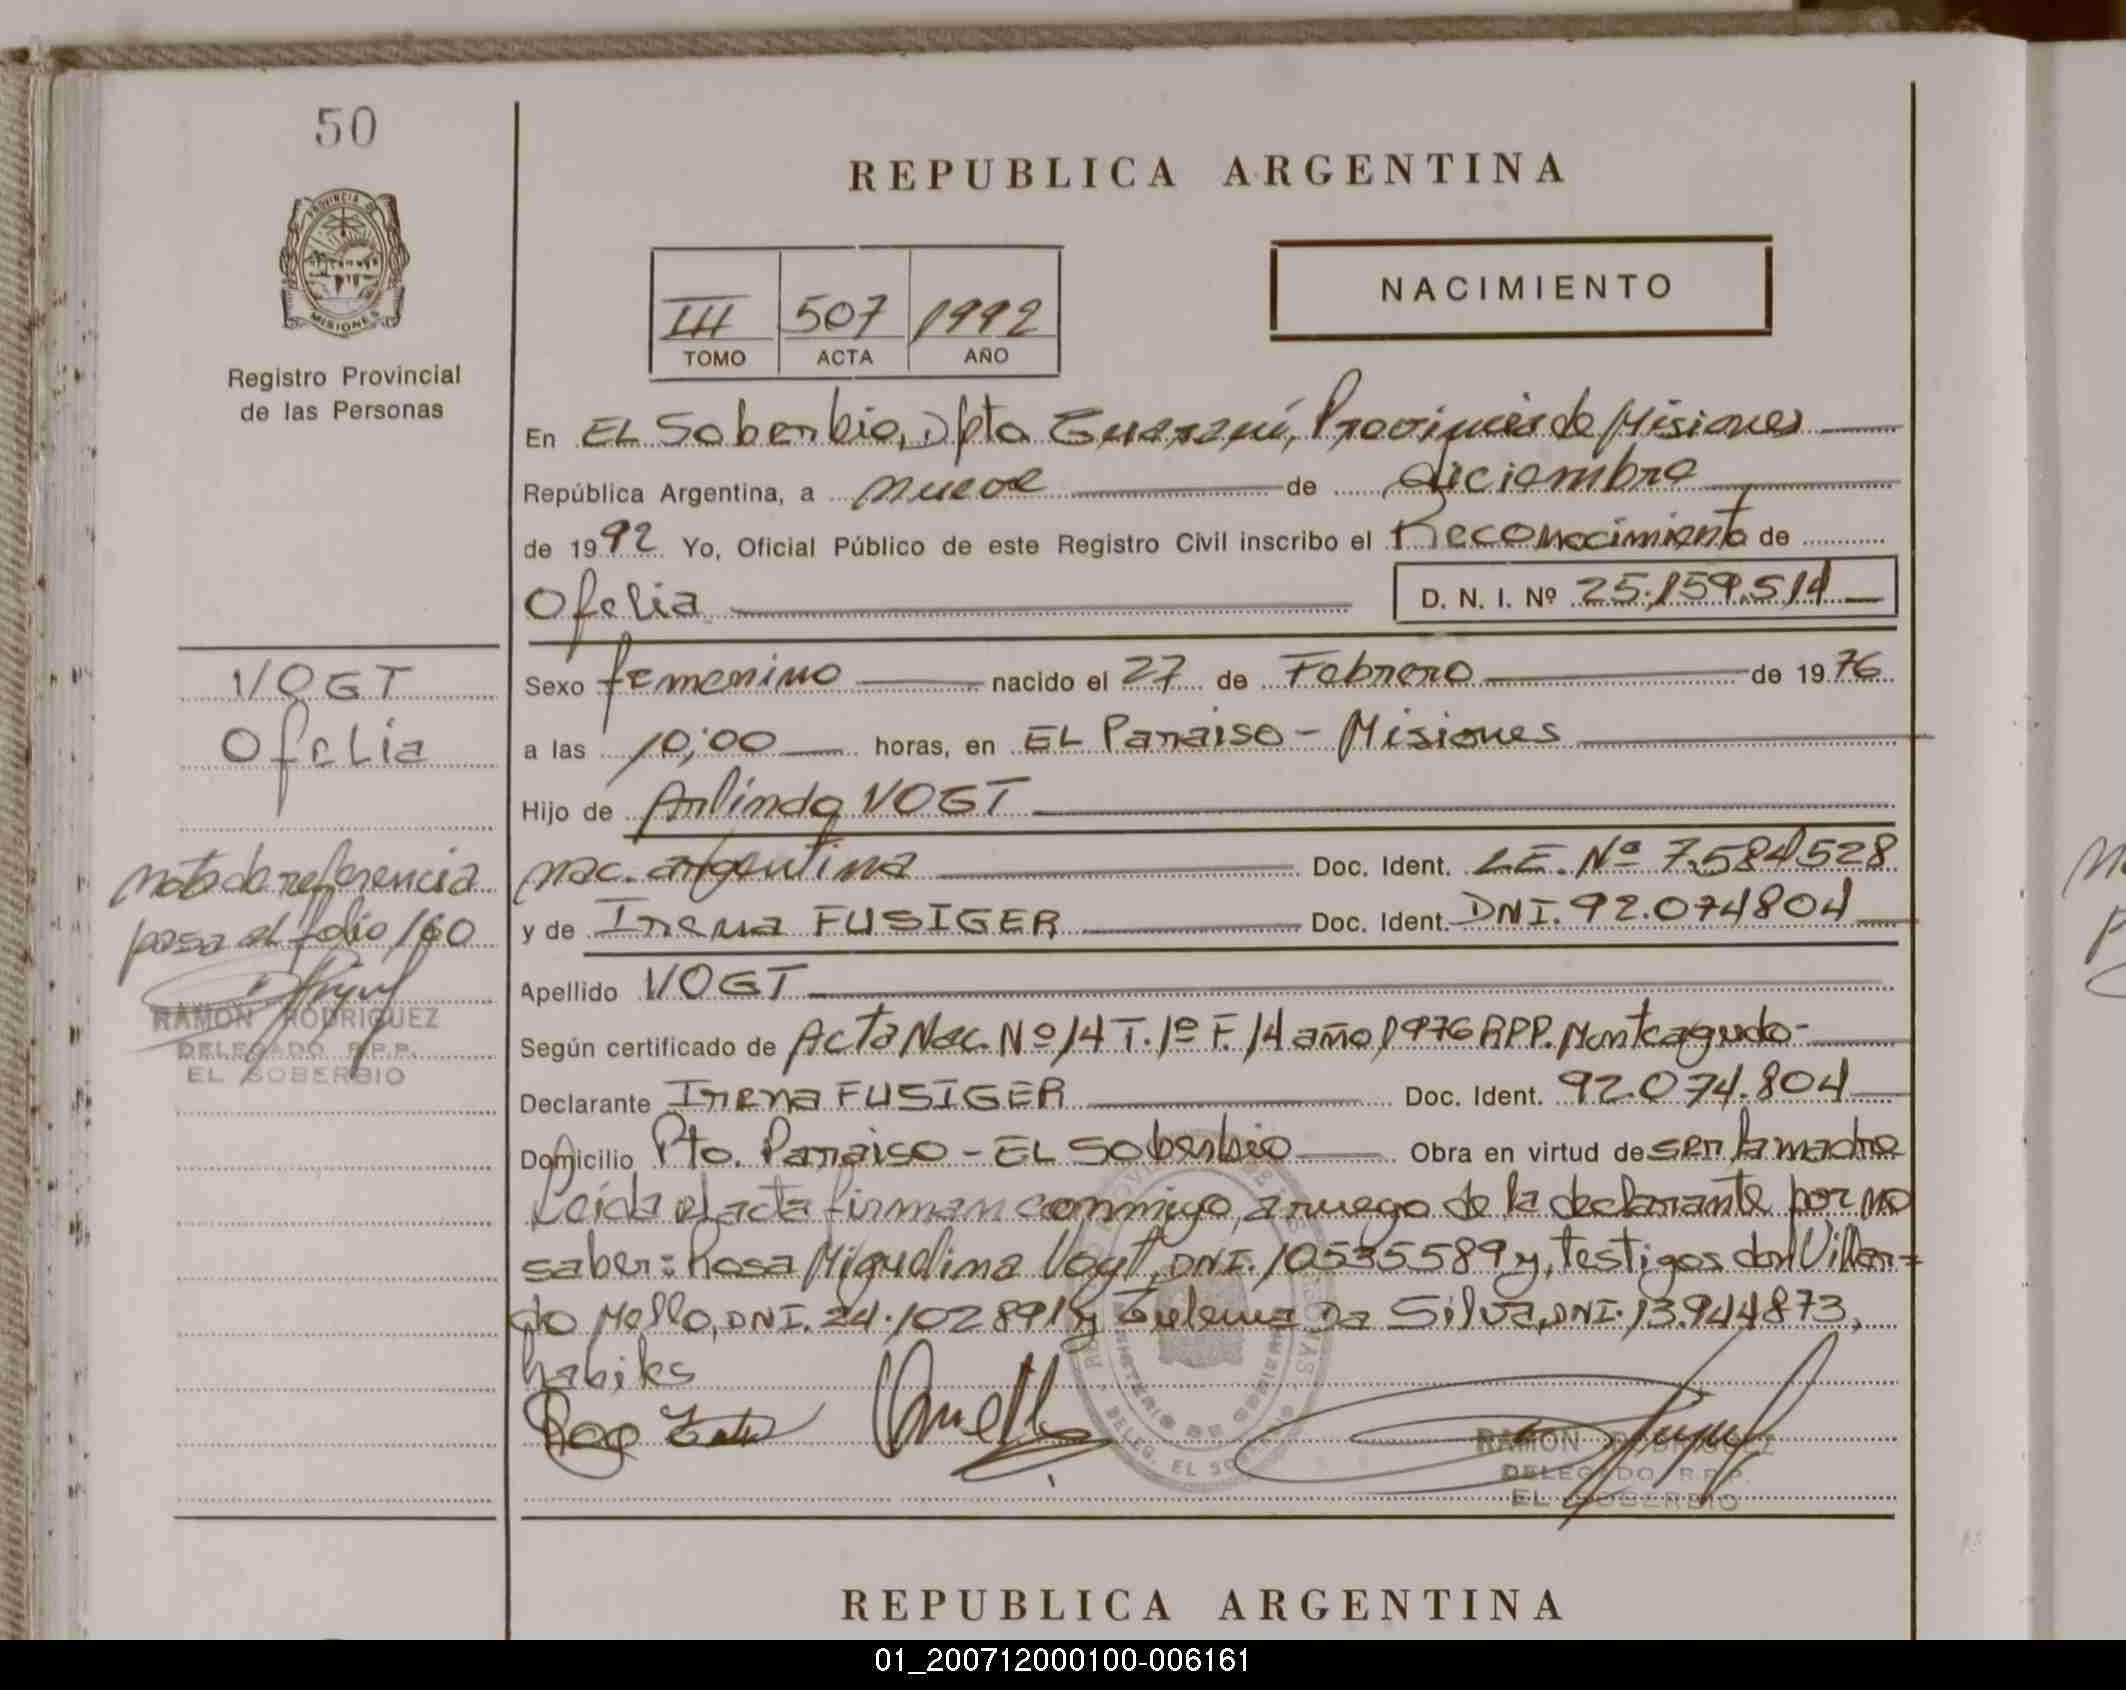 50
REPUBLICA ARGENTINA
PROVINCIA DE
MISIONES
NACIMIENTO
III 507 1992
TOMO ACTA AÑO
Registro Provincial
de las Personas
En EL Soberbio, Dpto Guaraní, Provincia de Misiones
República Argentina, a nueve de diciembre
de 1992 Yo, Oficial Público de este Registro Civil inscribo el Reconocimiento de
Ofelia D. N. I. Nº 25.159.514
VOGT
Ofelia
Sexo femenino nacido el 27 de Febrero de 1976
a las 10;00 horas, en EL Paraiso - Misiones
Hijo de Arlindo VOGT
nac. argentina Doc. Ident. LE. Nº 7.584528
y de Irena FUSIGER Doc. Ident. DNI. 92.074804
nota de referencia
pasa al folio 160
RAMON RODRIGUEZ
DELEGADO R.P.P.
EL SOBERBIO
Apellido VOGT
Según certificado de Acta Nac. Nº 14 T. 1º F. 14 año 1976 RPP. Monteagudo-
Declarante Irena FUSIGER Doc. Ident. 92.074.804
Domicilio Pto. Paraiso - EL Soberbio Obra en virtud de ser la madre
Leida el acta firman conmigo, a ruego de la declarante por no
saber: Rosa Miguelina Vogt, DNI. 10535589 y, testigos don Villar=
do Mello, DNI. 24.102891 y Zulema Da Silva, DNI. 13.944873,
habiles
RAMON RODRIGUEZ
DELEGADO R.P.P.
EL SOBERBIO
REPUBLICA ARGENTINA
01_200712000100-006161